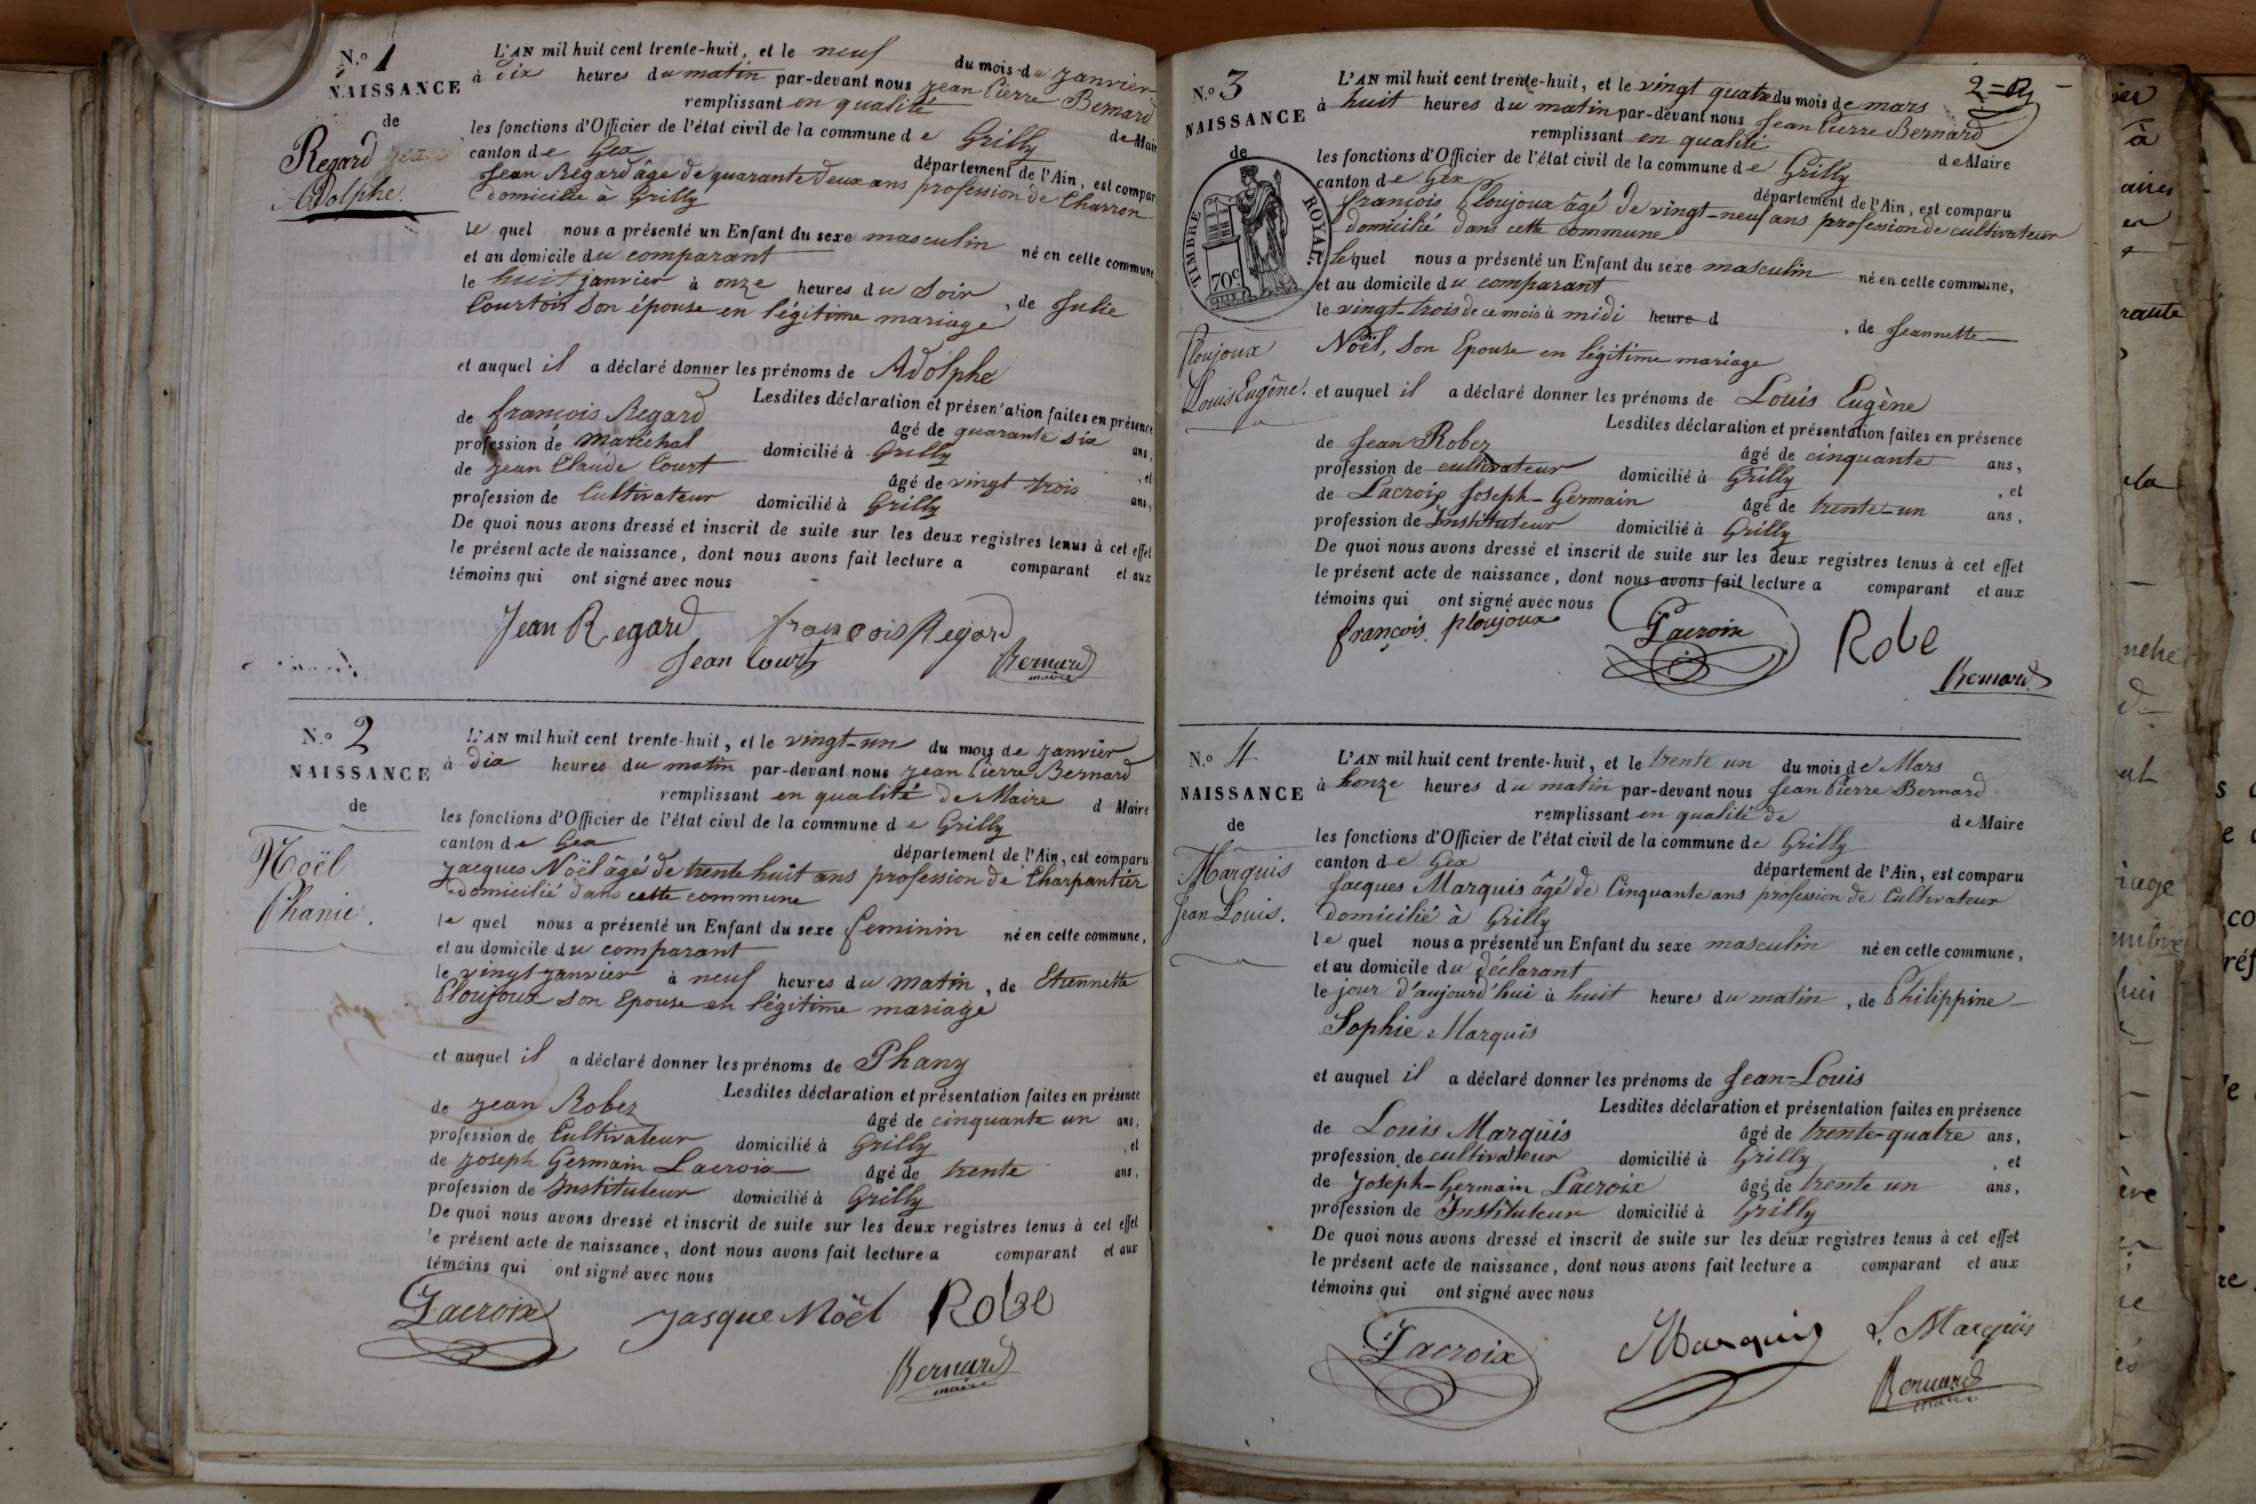 N.o 1
NAISSANCE
de
Regard Jean
Adolphe.
L'AN mil huit cent trente-huit, et le neuf du mois de janvier
à dix heures du matin par-devant nous jean Pierre Bernard
remplissant en qualité de Maire
les fonctions d'Officier de l'état civil de la commune de Grilly
canton de Gex département de l'Ain, est compar
Jean Regard âgé de quarante deux ans profession de Charron
domicilié à Grilly
le quel nous a présenté un Enfant du sexe masculin né en cette commune
et au domicile du comparant
le huit janvier à onze heures du Soir, de Julie
Courtois Son épouse en légitime mariage
et auquel il a déclaré donner les prénoms de Adolphe
Lesdites déclaration et présen'ation faites en présence
de françois Regard âgé de quarante six ans,
profession de maréchal domicilié à Grilly, et
de jean Claude Court âgé de vingt trois ans,
profession de Cultivateur domicilié à Grilly
De quoi nous avons dressé et inscrit de suite sur les deux registres tenus à cet effet
le présent acte de naissance, dont nous avons fait lecture a comparant et aux
témoins qui ont signé avec nous
Jean Regard françois Regard
Jean Court Bernard
maire
N.o 2
NAISSANCE
de
Noël
Phanie.
L'AN mil huit cent trente-huit, et le vingt-un du mois de janvier
à dix heures du matin par-devant nous jean Pierre Bernard
remplissant en qualité de Maire d Maire
les fonctions d'Officier de l'état civil de la commune de Grilly
canton de Gex département de l'Ain, est comparu
jacques Noël âgé de trente huit ans profession de Charpantier
domicilié dans cette commune
le quel nous a présenté un Enfant du sexe feminin né en cette commune,
et au domicile du comparant
le vingt janvier à neuf heures du matin, de Etiennette
Ploujoux son Epouse en légitime mariage
et auquel il a déclaré donner les prénoms de Phany
Lesdites déclaration et présentation faites en présence
de jean Robez âgé de cinquante un ans,
profession de Cultivateur domicilié à Grilly, et
de joseph Germain Lacroix âgé de trente ans,
profession de Instituteur domicilié à Grilly
De quoi nous avons dressé et inscrit de suite sur les deux registres tenus à cet effet
le présent acte de naissance, dont nous avons fait lecture a comparant et aux
témoins qui ont signé avec nous
Lacroix Jasque Noël Robe
Bernard
maire
2=
N.o 3
NAISSANCE
de
TIMBRE ROYAL.
70c
Ploujoux
Louis Eugène.
L'AN mil huit cent trente-huit, et le vingt quatre du mois de mars
à huit heures du matin par-devant nous Jean Pierre Bernard
remplissant en qualité de Maire
les fonctions d'Officier de l'état civil de la commune de Grilly
canton de Gex département de l'Ain, est comparu
françois Ploujoux âgé de vingt-neuf ans profession de cultivateur
domicilié dans cette commune
lequel nous a présenté un Enfant du sexe masculin né en cette commune,
et au domicile du comparant
le vingt-trois de ce mois à midi heure d, de Jeannette
Noël, Son Epouse en légitime mariage
et auquel il a déclaré donner les prénoms de Louis Eugène
Lesdites déclaration et présentation faites en présence
de Jean Robez âgé de cinquante ans,
profession de cultivateur domicilié à Grilly, et
de Lacroix Joseph-Germain âgé de trente-un ans,
profession de Instituteur domicilié à Grilly
De quoi nous avons dressé et inscrit de suite sur les deux registres tenus à cet effet
le présent acte de naissance, dont nous avons fait lecture a comparant et aux
témoins qui ont signé avec nous
françois ploujoux Lacroix Robe
Bernard
N.o 4
NAISSANCE
de
Marquis
Jean Louis.
L'AN mil huit cent trente-huit, et le trente un du mois de Mars
à honze heures du matin par-devant nous Jean Pierre Bernard
remplissant en qualité de de Maire
les fonctions d'Officier de l'état civil de la commune de Grilly
canton de Gex département de l'Ain, est comparu
Jacques Marquis âgé de Cinquante ans profession de Cultivateur
domicilié à Grilly
le quel nous a présenté un Enfant du sexe masculin né en cette commune,
et au domicile du déclarant
le jour d'aujourd'hui à huit heures du matin, de Philippine
Sophie Marquis
et auquel il a déclaré donner les prénoms de Jean-Louis
Lesdites déclaration et présentation faites en présence
de Louis Marquis âgé de trente-quatre ans,
profession de cultivateur domicilié à Grilly, et
de Joseph-Germain Lacroix âgé de trente un ans,
profession de Instituteur domicilié à Grilly
De quoi nous avons dressé et inscrit de suite sur les deux registres tenus à cet effet
le présent acte de naissance, dont nous avons fait lecture a comparant et aux
témoins qui ont signé avec nous
Lacroix Marquis L. Marquis
Bernard
maire